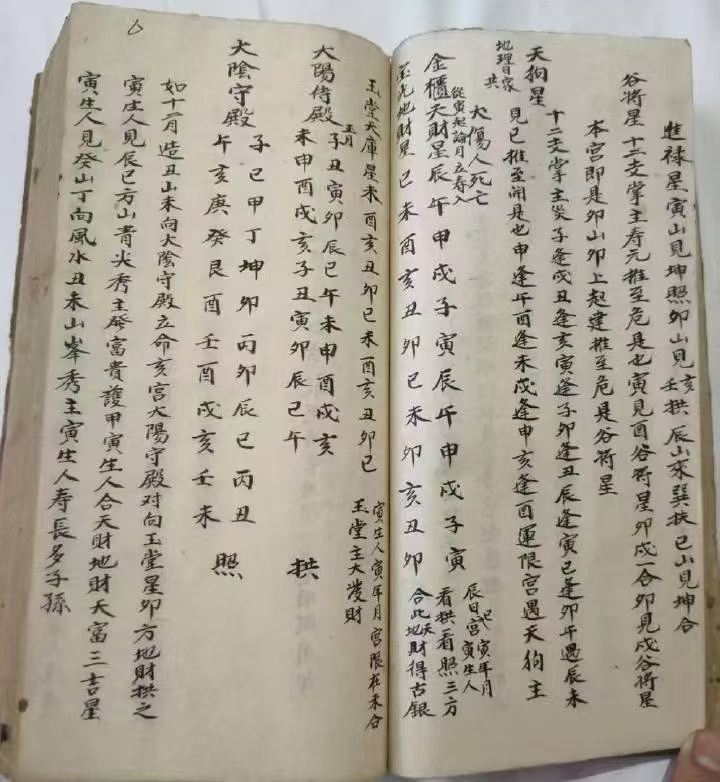 進禄星寅山見坤照卯山見亥壬拱辰山來巽扶巳山見坤合
谷將星十二支掌主寿元推至危是也寅見酉谷將星卯戌一合卯見戌谷將星
本宮即是卯山卯上起建推至危是谷將星
天狗星十二支掌主災子逢戌丑逢亥寅逢子卯逢丑辰逢寅巳逢卯午遇辰未
地理日家共
見巳推至闭是也申逢午酉逢未戌逢申亥逢酉運限宮遇天狗主
大傷人死亡
從寅起論月立春入
金櫃天財星辰午申戌子寅辰午申戌子寅
辰日宮寅生人
巳寅年月
看拱看照三方
地財星巳未酉亥丑卯巳未卯亥丑卯
合此天地財得古銀
玉堂天庫星未酉亥丑卯巳未酉亥丑卯巳
寅生人寅年月宮限在未合
玉堂主大發財
正月
大陽侍殿子丑寅卯辰巳午未申酉戌亥
未申酉戌亥子丑寅卯辰巳午
拱
大陰守殿子巳甲丁坤卯丙卯辰巳丙丑
午亥庚癸艮酉壬酉戌亥壬未
照
如十二月造丑山未向大陰守殿立命亥宮大陽守殿对向玉堂星卯方地財拱之
寅庄人見辰巳方山青尖秀主發富貴護甲寅生人合天財地財天富三吉星
寅生人見癸山丁向風水丑未山峯秀主寅生人寿長多子孫